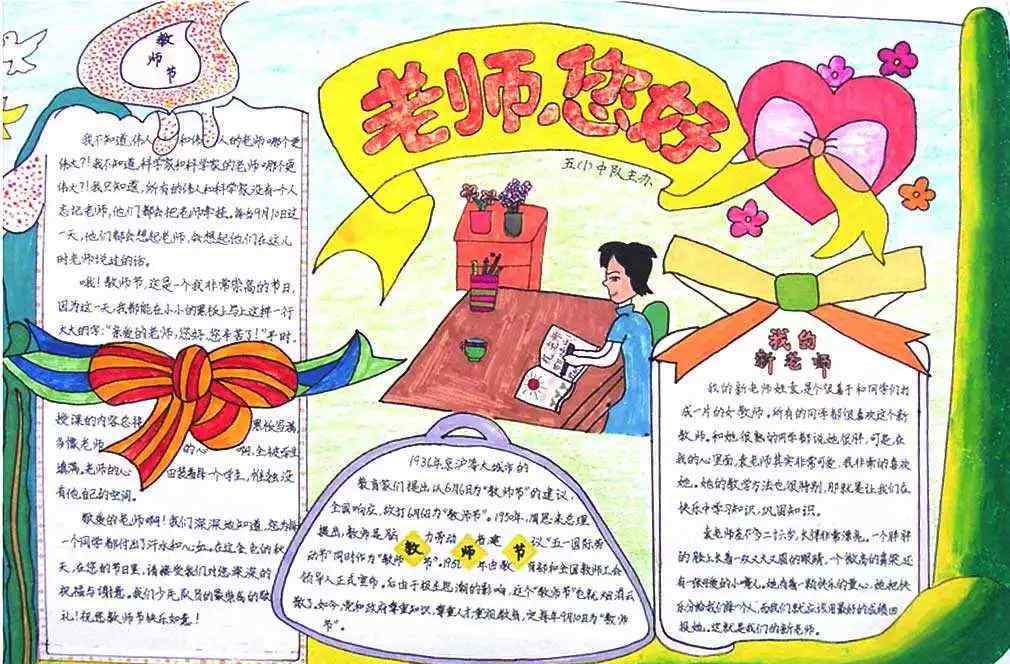 老师,您好
五(1)中队主办
教
师
节
我不知道,伟人 和伟 人的老师哪个更
伟大?!我不知道,科学家和科学家的老师哪个更
伟大?!我只知道,所有的伟人和科学家没有一个人
忘记老师,他们都会把老师牵挂。每当9月10日这
一天,他们都会想起老师,会想起他们在这儿
时老师说过的话。
哦!教师节,这是一个我非常崇高的节日,
因为这一天,我都能在小小的黑板上写上这样一行
大大的字:“亲爱的老师,您好,您辛苦了!”
授课的内容总将 黑板写满,
多像老师 的心 啊,全被学生
填满。老师的心 每一个学生,惟独没
有他自己的空间。
敬爱的老师啊!我们深深地知道,您为每
一个同学都付出了汗水和心血。在这金色的秋
天,在您的节日里,请接受我们对您深深的
祝福与 我们少先队员的最崇高的敬
礼!祝您教师节快乐如意!
1936年京沪等大城市的
教育家们提出以6月6日为“教师节”的建议,
全国响应,故打6月6日为“教师节”。1950年,周恩来总理
提出,教师是脑 力劳动 者建 议“五一国际劳
动节”同时作为“教师 节”。1951 年由教 育部和全国教师工会
领导人正式宣布,后由于极左思潮的影响,这个“教师节”也就烟消云
散了。如今,党和政府尊重知识,尊重人才,重视教育,定每年9月10日为“教师
节”。
教 师 节
我的
新老师
我的新老师姓袁,是个很善于和同学们打
成一片的好教师。所有的同学都很喜欢这个新
教师。和她很熟的同学都说她很胖,可是,在
我的心里面,袁老师其实非常可爱,我非常的喜欢
她。她的教学方法也很特别,那就是让我们在
快乐中学习知识,巩固知识。
袁老师差不多二十六岁,长得非常漂亮,一个胖胖
的脸上长着一双大大又圆的眼睛,一个微高的鼻梁,还
有一张可爱的小嘴儿。她有着一颗快乐的童心。她把快
乐分给我们每一个人,而我们就应该用最好的成绩回
报她。这就是我们的新老师。